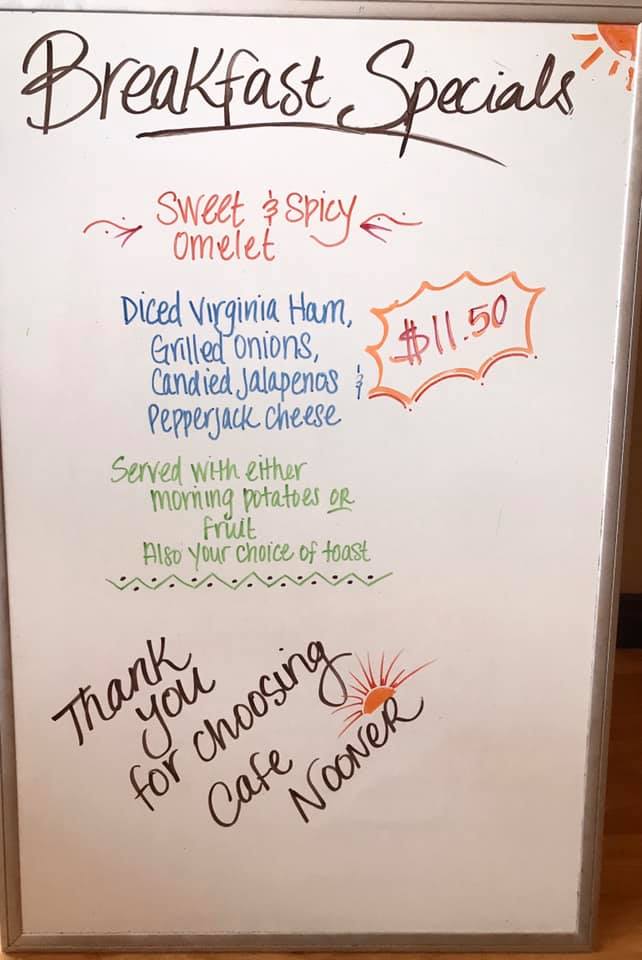 Breakfast Specials
Sweet & Spicy
Omelet
Diced Virginia Ham,
Grilled Onions,
Candied Jalapenos &
Pepperjack Cheese
$11.50
Served with either
morning potatoes OR
fruit
Also your choice of toast
Thank
you
for choosing
Cafe
Nooner